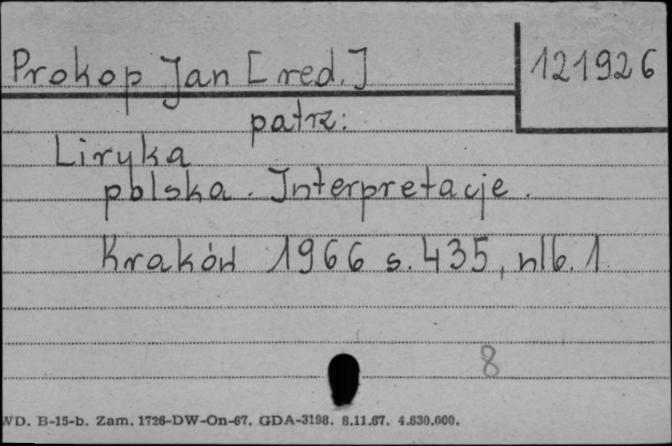 Prokop Jan [red.]
121926
patrz:
Liryka
polska. Interpretacje.
Kraków 1966 s. 435, nlb. 1
8
WD. B-15-b. Zam. 1726-DW-On-67. GDA-3198. 8.11.67. 4.630.000.